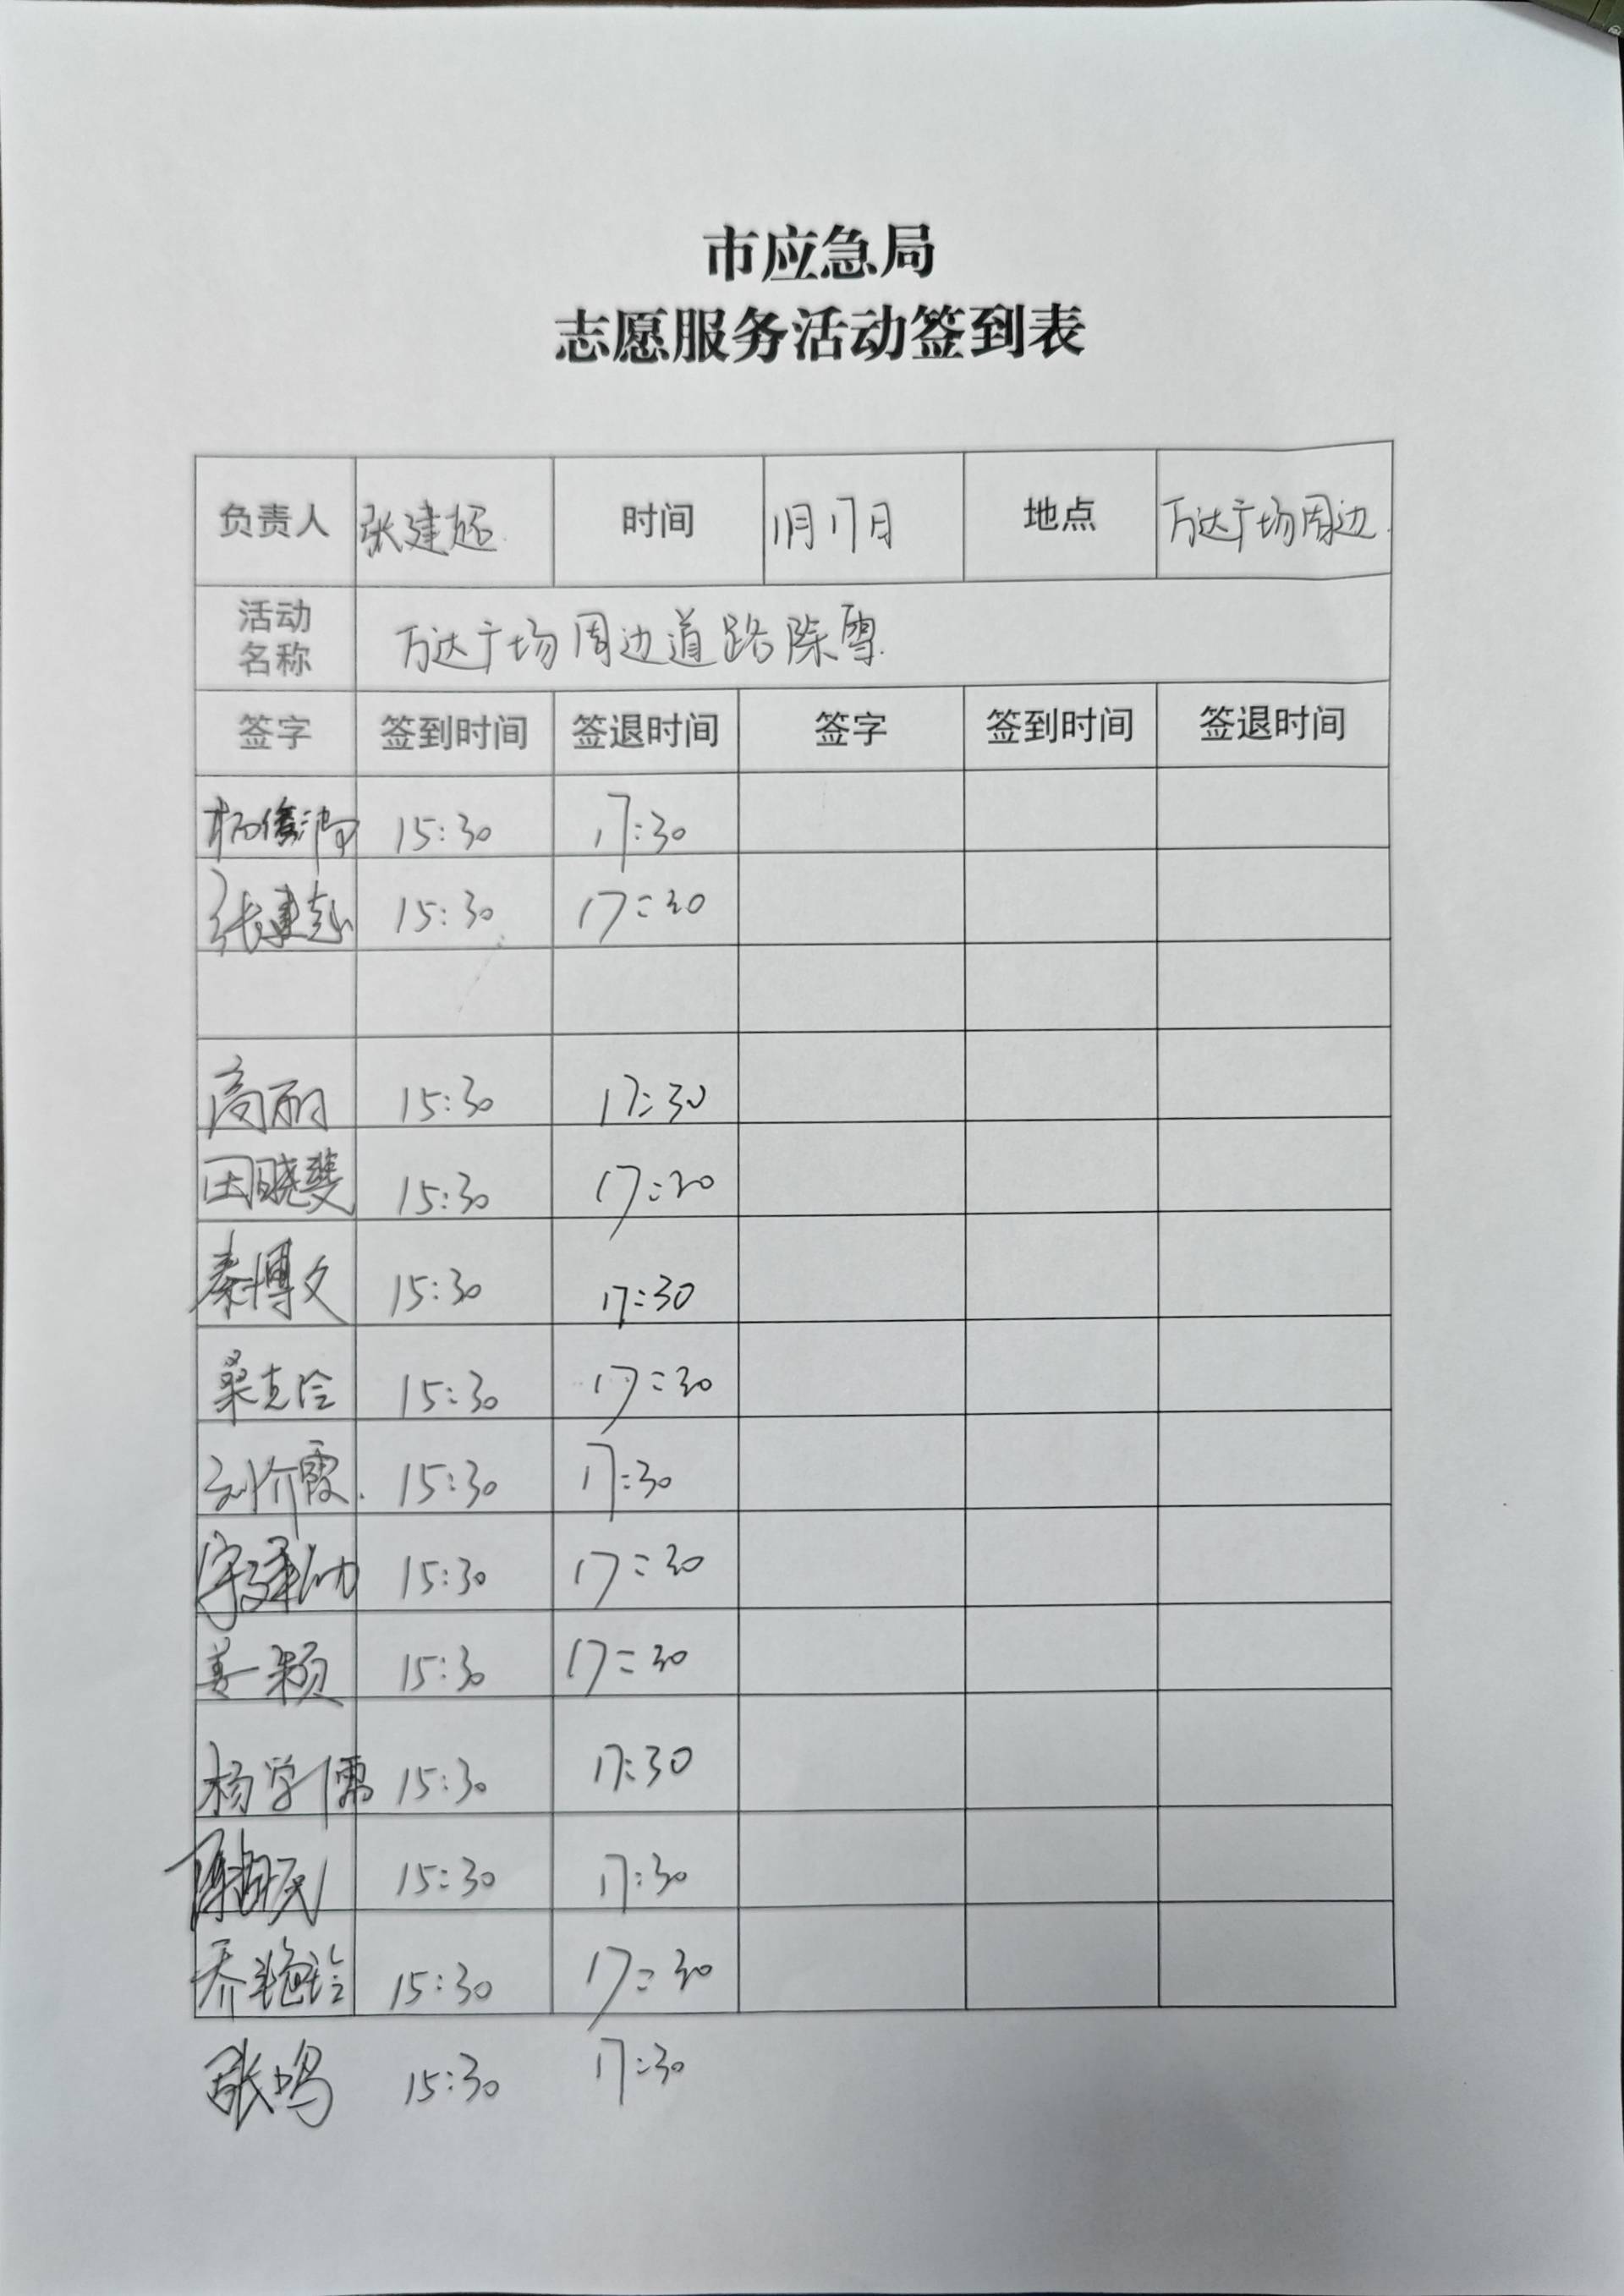 市应急局
志愿服务活动签到表
负责人 张建超 时间 1月17日 地点 万达广场周边
活动名称 万达广场周边道路除雪
签字 签到时间 签退时间 签字 签到时间 签退时间
15:30 17:30
张建超 15:30 17:30
高丽 15:30 17:30
田晓斐 15:30 17:30
秦博文 15:30 17:30
桑克伶 15:30 17:30
刘介霞 15:30 17:30
15:30 17:30
姜颖 15:30 17:30
杨学儒 15:30 17:30
15:30 17:30
乔艳玲 15:30 17:30
张鸣 15:30 17:30